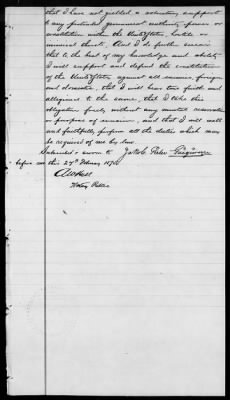 that I have not yielded a voluntary support
to any pretended government authority power or
constitution within the United States, hostile or
inimical thereto. And I do further swear
that to the best of my knowledge and ability
I will support and defend the constitution
of the United States against all enemies, foreign
and domestic, that I will bear true faith and
allegiance to the same, that I take this
obligation freely without any mental reservation
or purpose of evasion, and that I will well
and faithfully perform all the duties which may
be required of me by law
Subscribed & sworn to Jakob Peter
before me this 27th February 1876
Notary Public